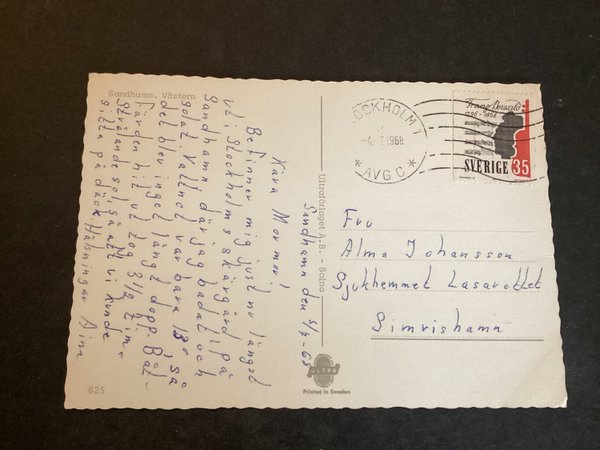 Sandhamn. Västern
Sandhamn den 5/7 -68
Kära Mormor!
Befinner mig just nu längst
ut i Stockholms skärgård, på
Sandhamn, där jag badat och
solat. Vattnet var bara 13° så
det blev inget långt dopp. Båt-
färden hit ut tog 3 1/2 tim.
Strålande sol, så att vi kunde
sitta på däck. Hälsningar
825
Ultraförlaget A.B. - Solna
ULTRA
Printed in Sweden
STOCKHOLM 1
1968
* AVG C *
Franz Berwald
1796-1868
SVERIGE 35
Fru
Alma Johansson
Sjukhemmet Lasarettet
Simrishamn